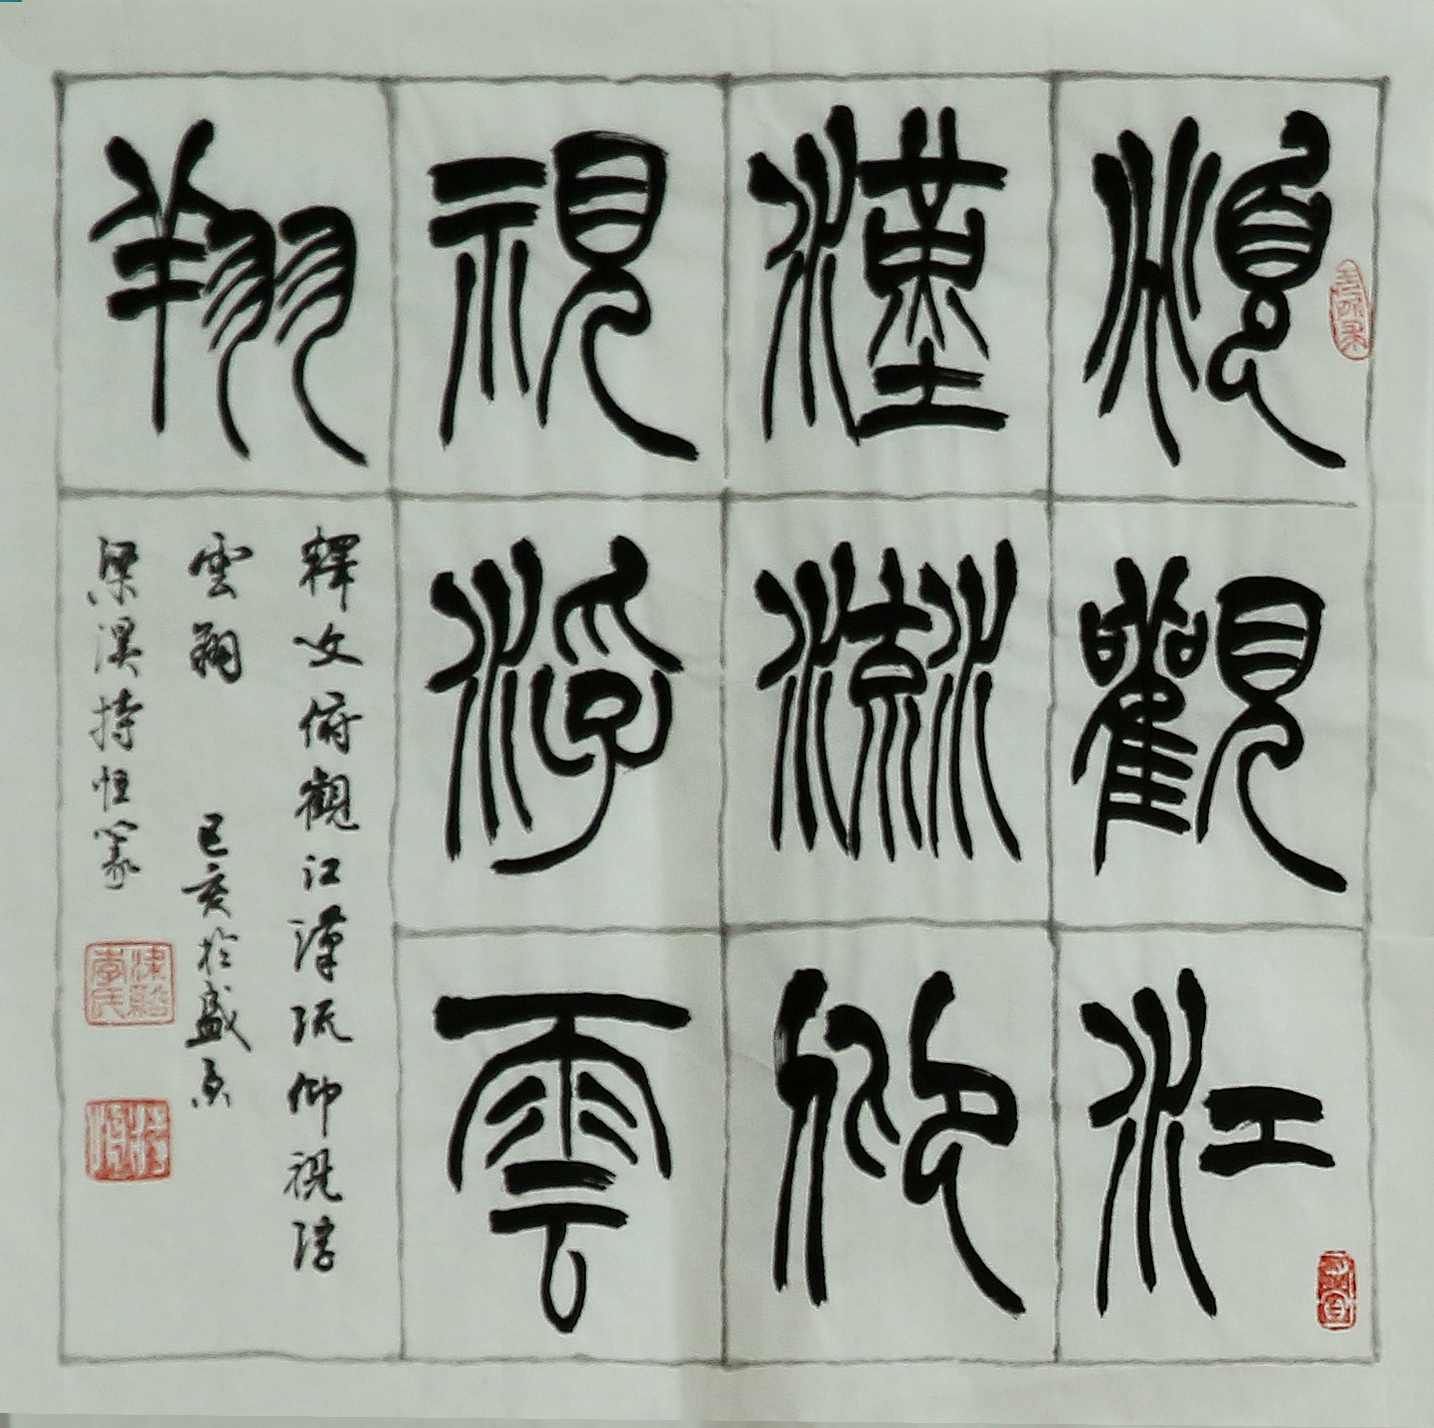 頫觀江
漢流仰
視浮雲
翔
釋文俯觀江漢流仰視浮
雲翔 己亥於盛京
梁溪持恒篆